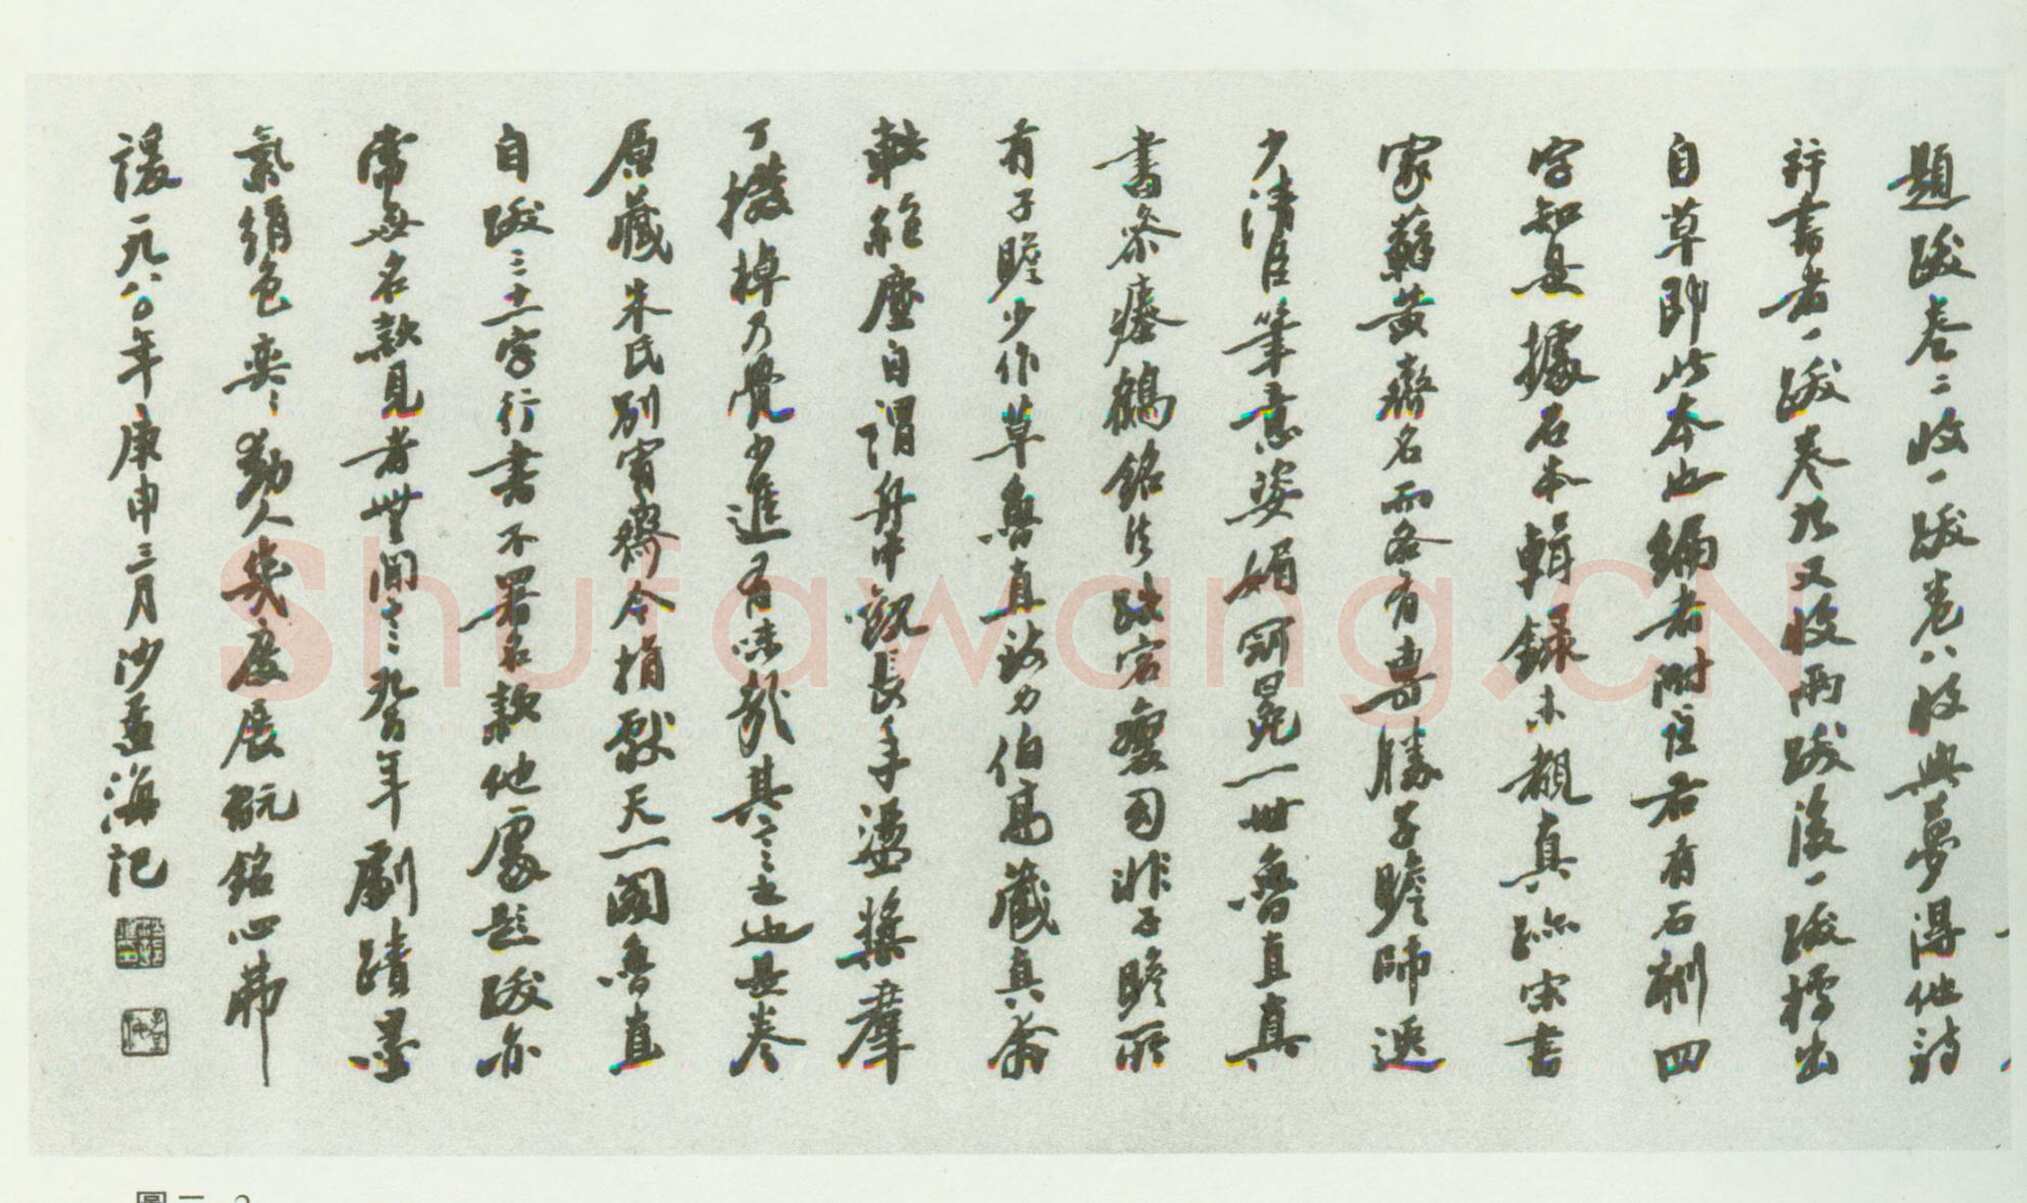 題跋卷二收一跋卷八收與夢得他詩
行書者一跋卷九又收兩跋後一跋標出
自草即此本也編者附注右有石刻四
字知是據石本輯錄未覩真跡宋書
家蘇黃齊名而各有專勝子瞻師遜
少清臣筆意姿媚冠冕一世魯直真
書參瘞鶴銘法跌宕夐司非子瞻所
有子瞻少作草魯直致力伯高藏真兼
軼絕塵自謂舟中觀長年盪槳羣
丁撥棹乃覺少進有味哉其言之也是卷
原藏朱氏別宥齋今捐獻天一閣魯直
自跋三十二字行書不署名款他處題跋亦
常無名款見者世間六百年劇蹟墨
氣絹色奕奕動人幾度展翫銘心弗
諼一九八〇年庚申三月沙孟海記
shufawang.CN
圖二-2